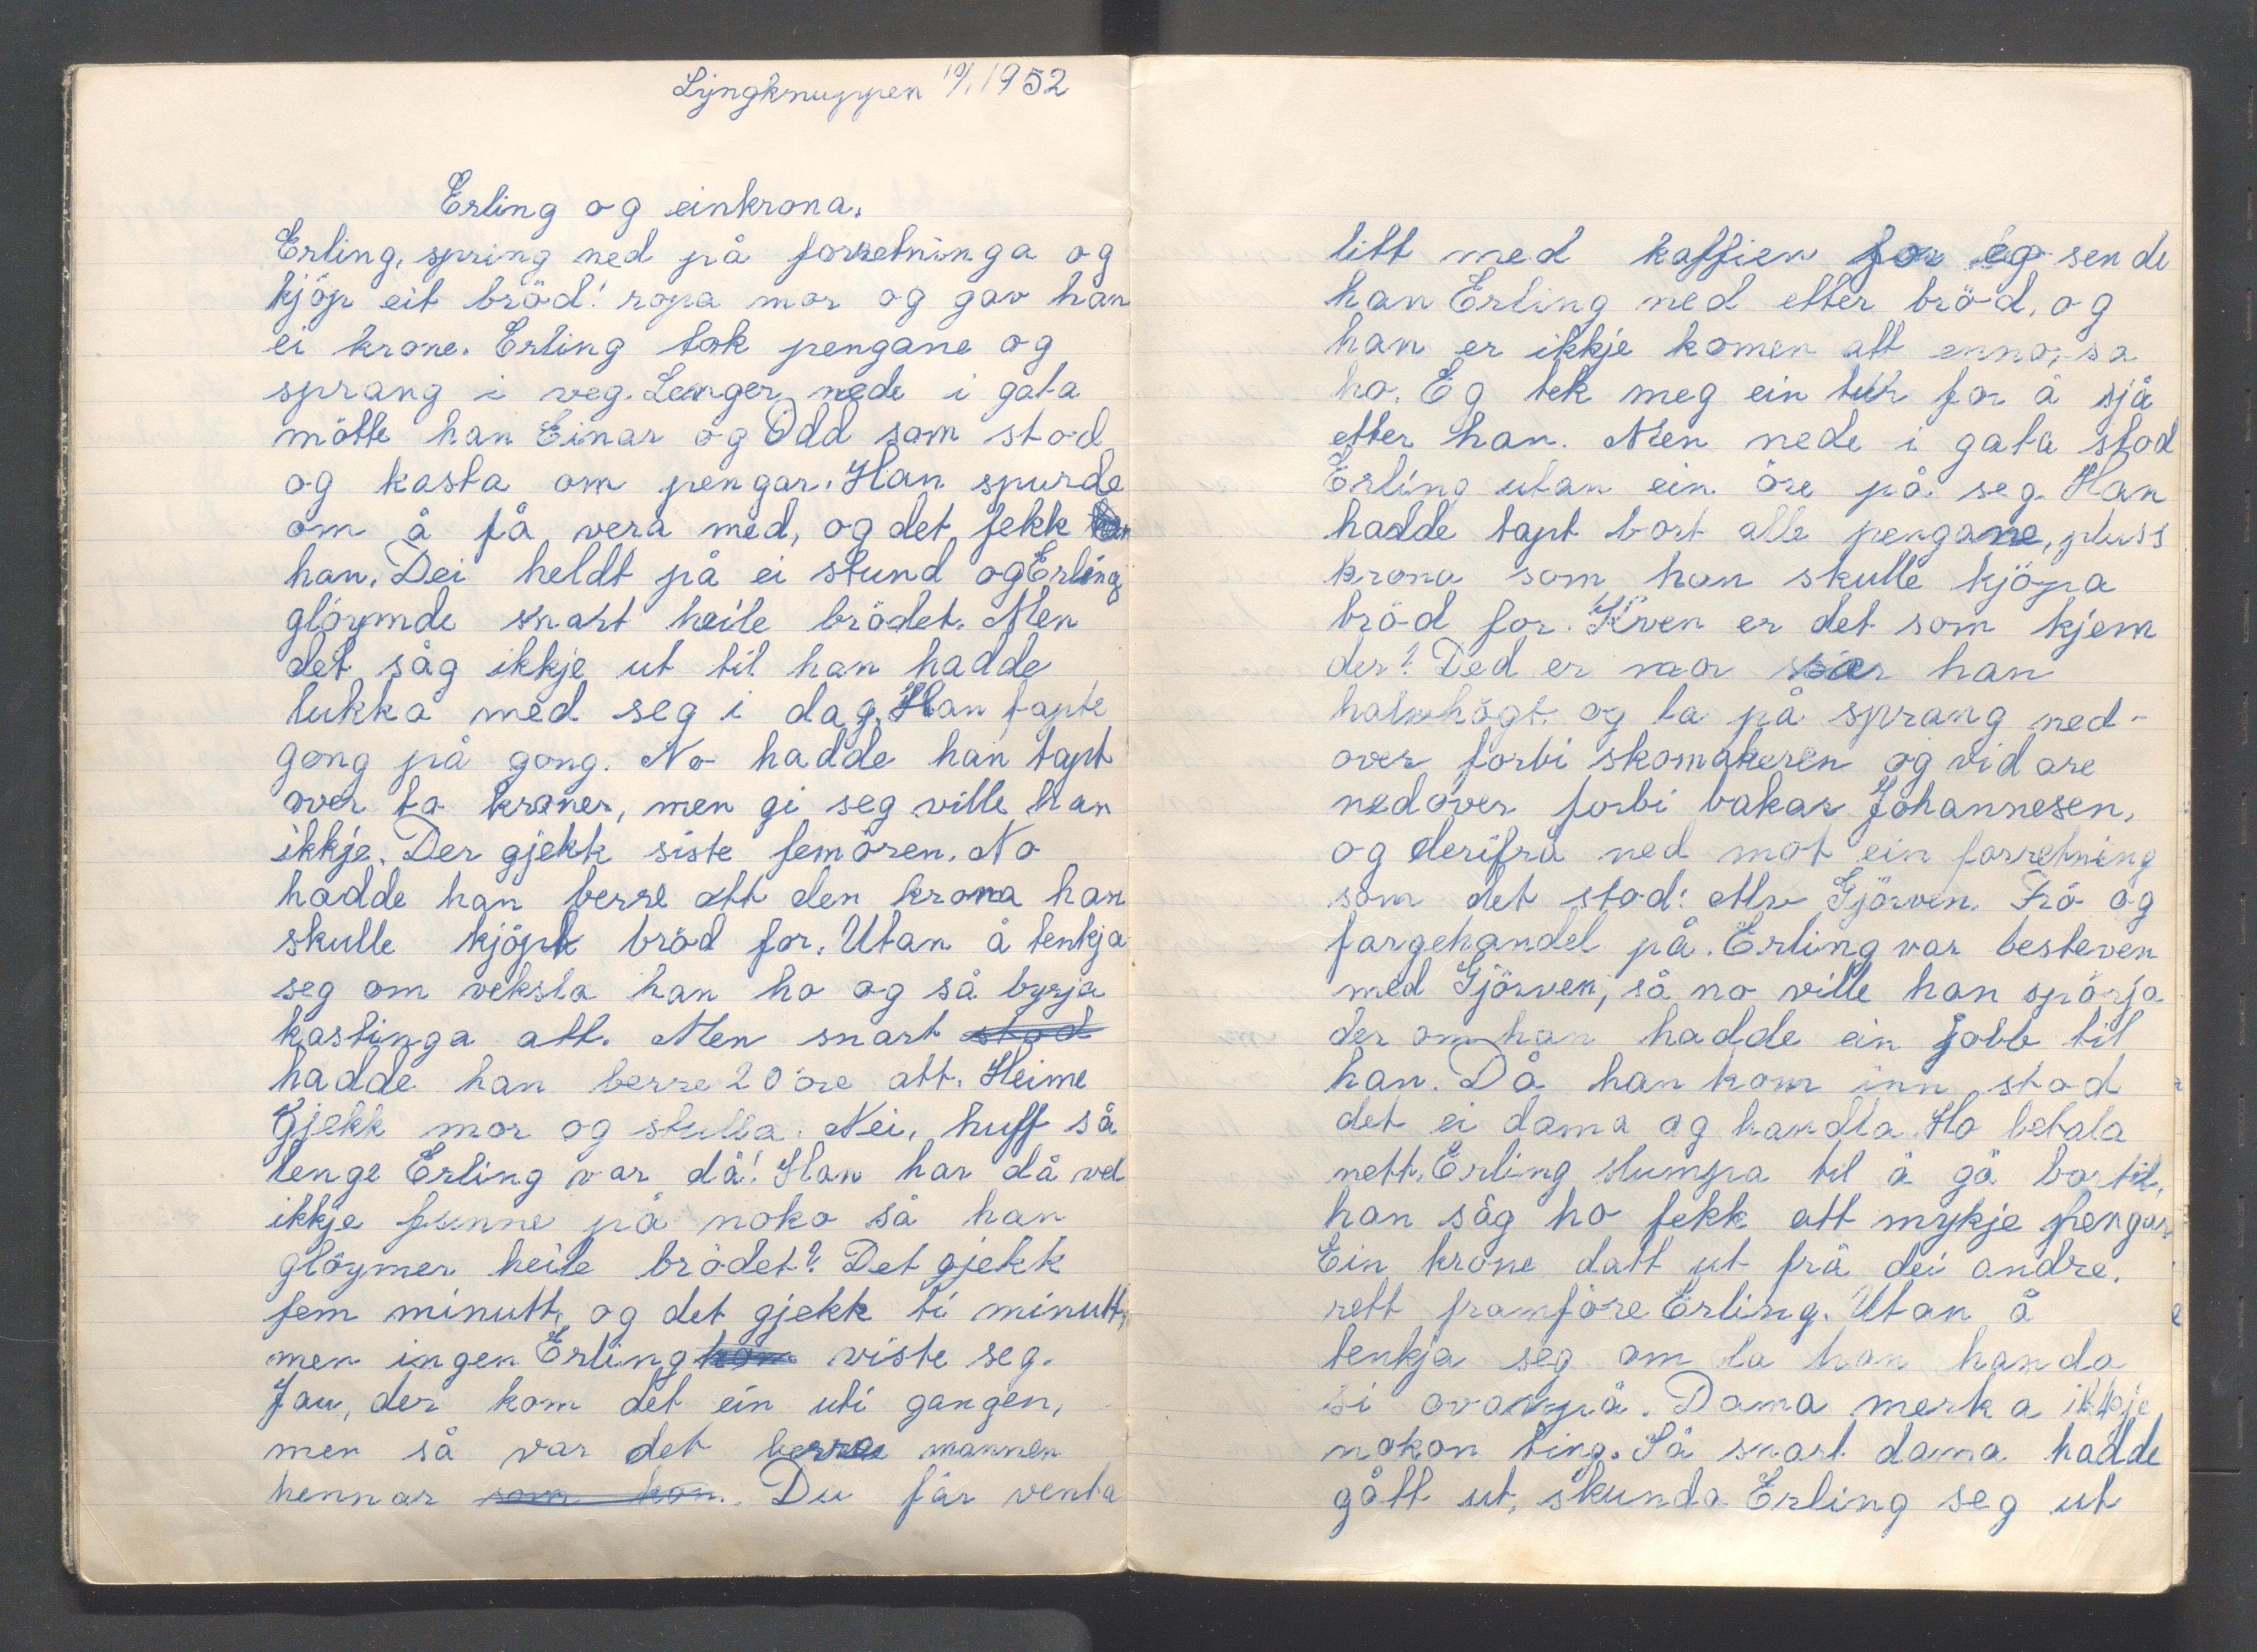 Lyngknuppen 10/1 1952
Erling og einkrona.
Erling, spring ned på forretninga og
kjöp eit bröd! ropa mor og gav han
ei krone. Erling tok pengane og
sprang i veg. Lenger nede i gata
mötte han Einar og Odd som stod
og kasta om pengar. Han spurde
om å få vera med, og det fekk
han. Dei heldt på ei stund og Erling
glöymde snart heile brödet. Men
det såg ikkje ut til han hadde
lukka med seg i dag. Han tapte
gong på gong. No hadde han tapt
over to kroner, men gi seg ville han
ikkje. Der gjekk siste femören. No
hadde han berre att den krona han
skulle kjöpt bröd for. Utan å tenkja
seg om veksla han ho og så byrja
kastinga att. Men snart stod
hadde han berre 20 öre att. Heime
gjekk mor og stulla. Nei, huff så
lenge Erling var då! Han har då vel
ikkje funne på noko så han
glöymer heile brödet? Det gjekk
fem minutt, og det gjekk ti minutt,
men ingen Erling kom viste seg.
Jau, der kom det ein uti gangen,
men så var det berre mannen
hennar som kom. Du får venta
litt med kaffien for eg sende
han Erling ned etter bröd, og
han er ikkje komen att enno, sa
ho. Eg tek meg ein tur for å sjå
etter han. Men nede i gata stod
Erling utan ein öre på seg. Han
hadde tapt bort alle pengane, pluss
krona som han skulle kjöpa
bröd for. Kven er det som kjem
der? Ded er mor sa han
halvhögt og la på sprang ned-
over forbi skomakeren og vidare
nedover forbi bakar Johannesen,
og derifrå ned mot ein forretning
som det stod: Alv Gjörven. Frö og
fargehandel på. Erling var besteven
med Gjörven, så no ville han spörja
der om han hadde ein jobb til
han. Då han kom inn stod
det ei dama og handla. Ho betala
nett. Erling slumpa til å gå bortil,
han såg ho fekk att mykje pengar.
Ein krone datt ut frå dei andre.
rett framföre Erling. Utan å
tenkja seg om la han handa
si ovanpå. Dama merka ikkje
nokon ting. Så snart dama hadde
gått ut, skunda Erling seg ut